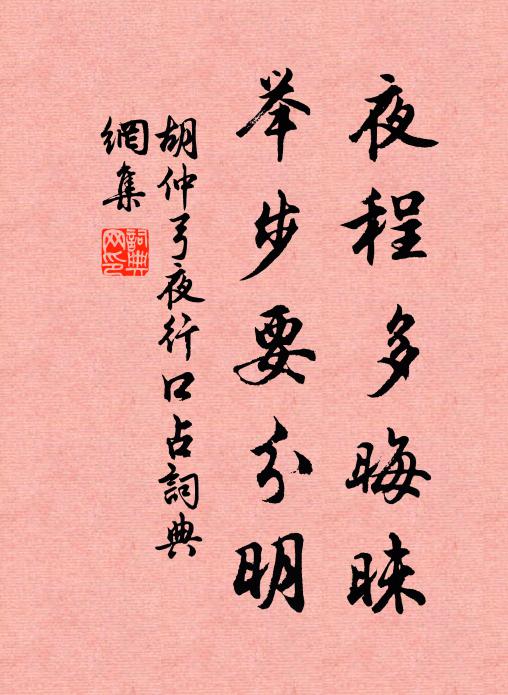 夜程多晦昧
举步要分明
胡仲弓夜行口占詞典
網集
詞典
网印